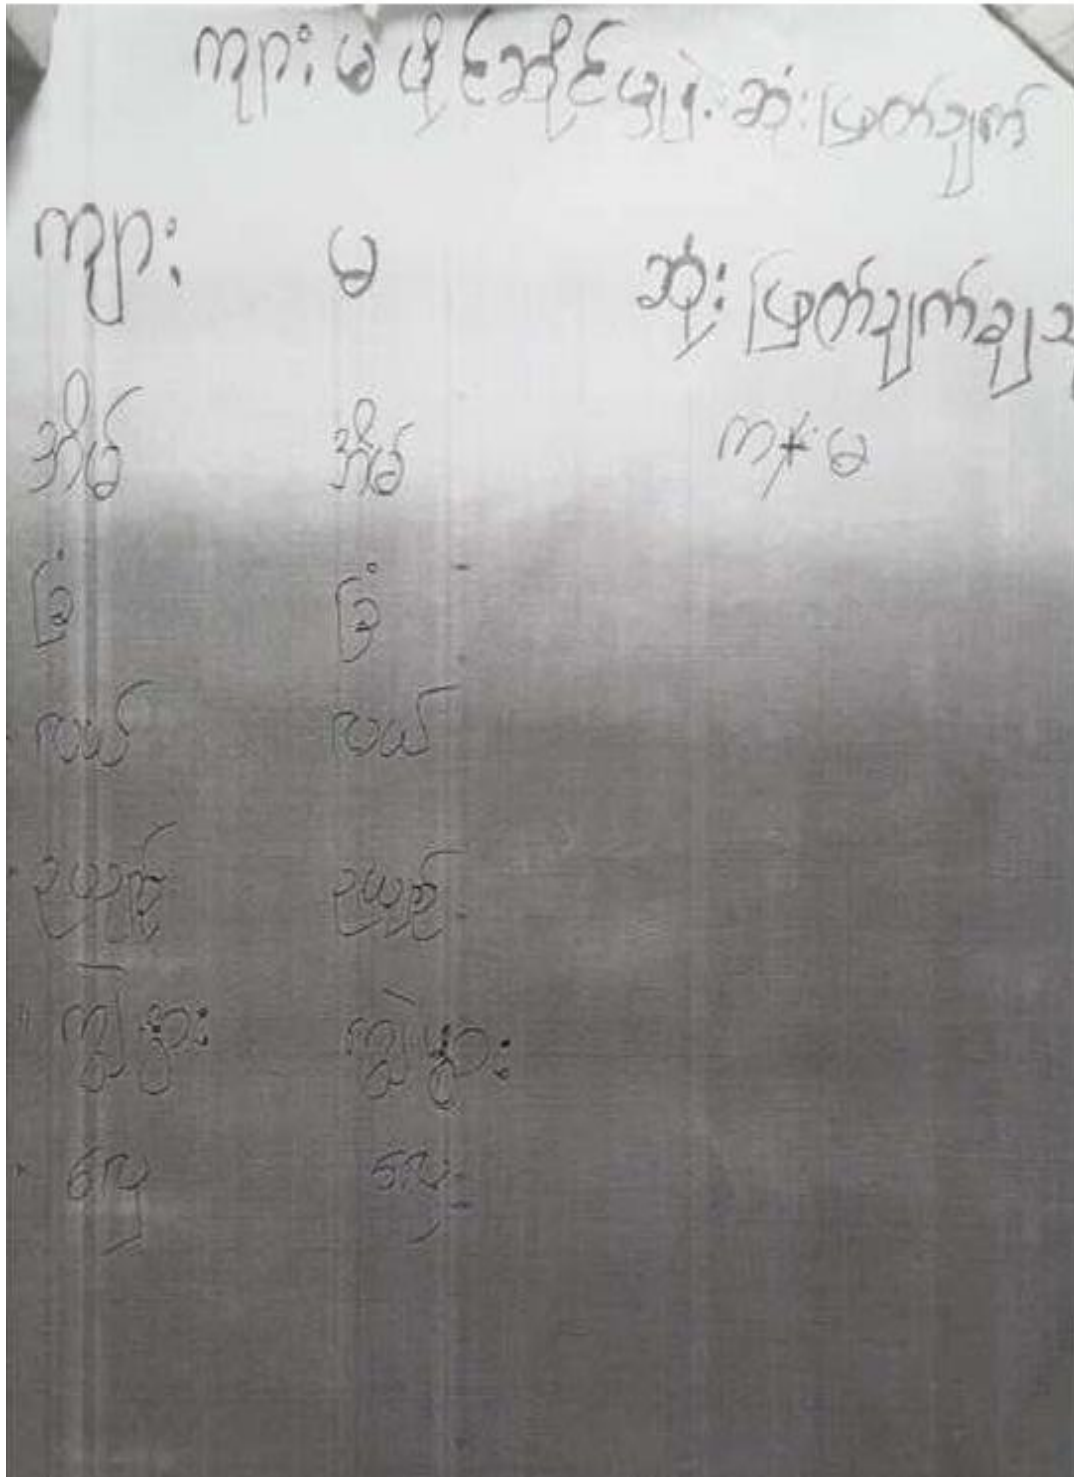 ကျား မ ပိုင်ဆိုင်မှုနဲ့ ဆုံးဖြတ်ချက်
ကျား မ ဆုံးဖြတ်ချက်ချသ
အိမ် အိမ် ကျ+မ
ခြံ ခြံ
လယ် လယ်
ဥယျာဉ် ဥယျာဉ်
ကျွဲနွား ကျွဲနွား
လှေ လှေ